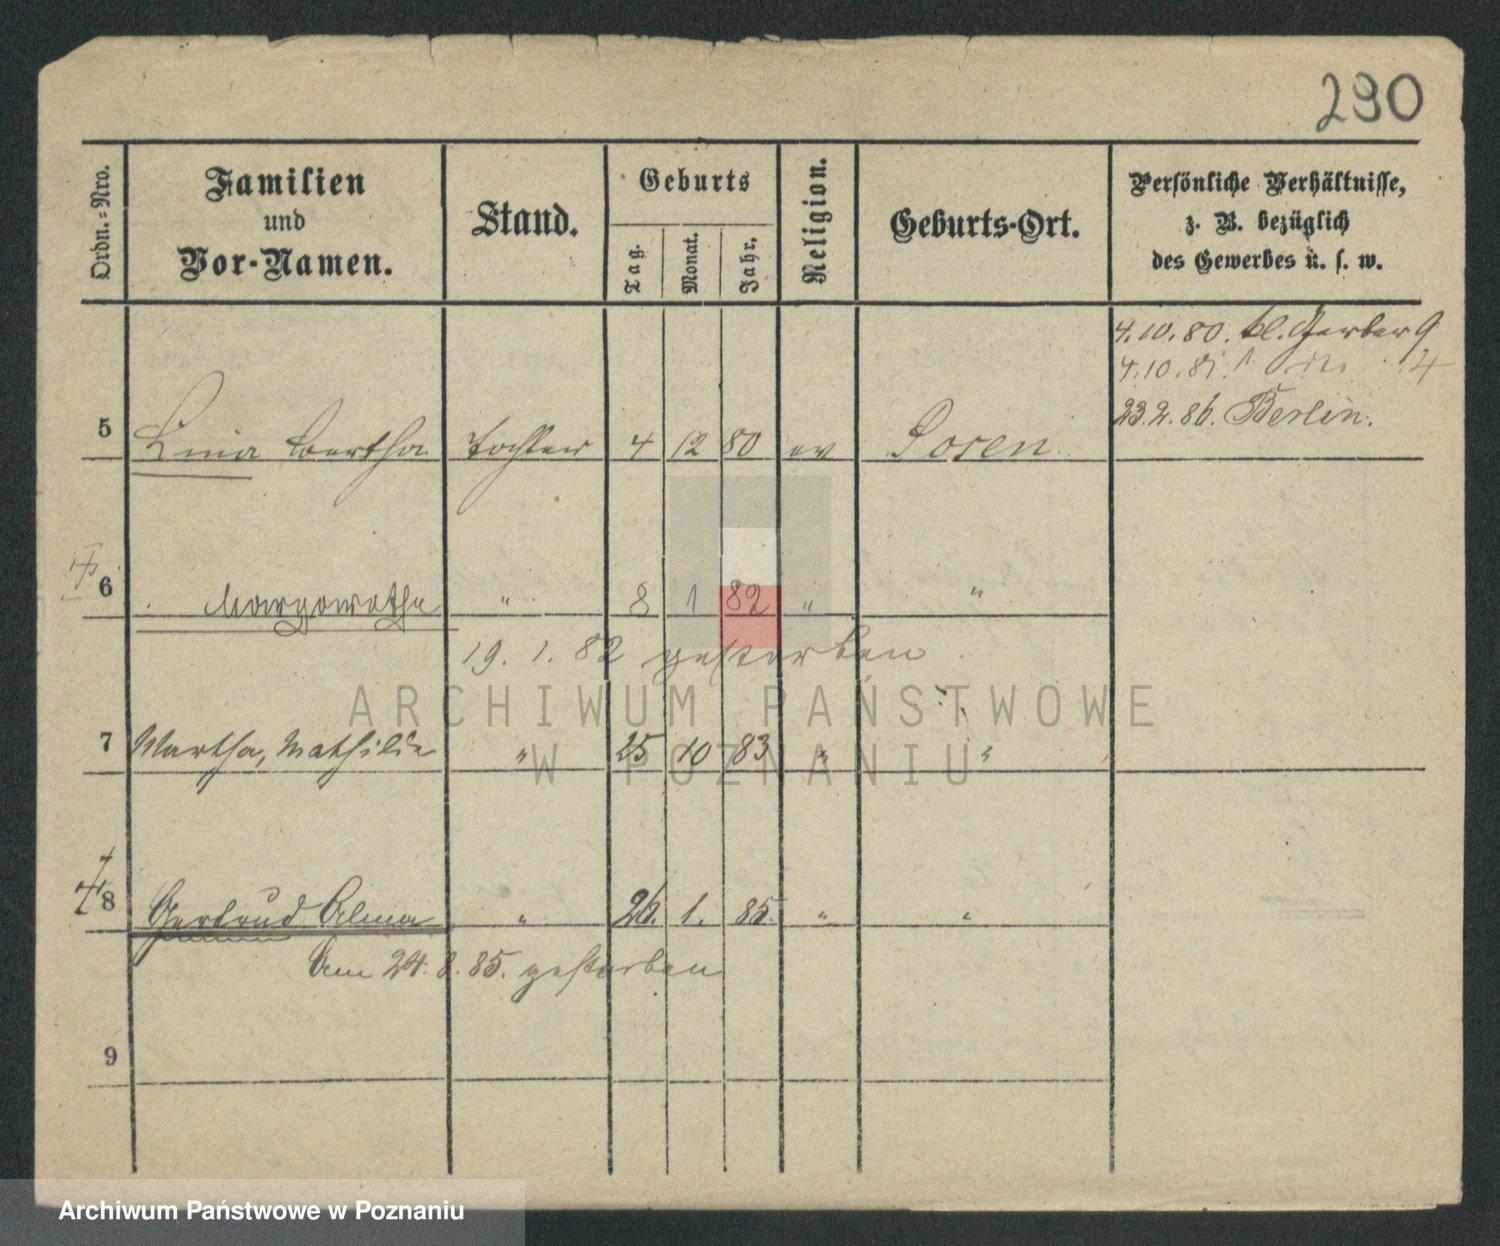 290
Ordn.=Nro.
Familien
und
Vor-Namen.
Stand.
Geburts
Tag.
Monat.
Jahr.
Religion.
Geburts-Ort.
Persönliche Verhältnisse,
z. B. bezüglich
des Gewerbes u. s. w.
4.10.80. kl. Gerber 9
4.10.81.
4
23.2.86. Berlin.
5 Lina Bertha Tochter 4 12 80 ev Posen
6 Margaretha " 8 1 82 " "
19. 1. 82 gestorben
ARCHIWUM PAŃSTWOWE
W POZNANIU
7 Martha, Mathilde " 25 10 83 " "
8 Gertrud Alma " 26. 1. 85. " "
Am 24. 8. 85. gestorben
9
Archiwum Państwowe w Poznaniu